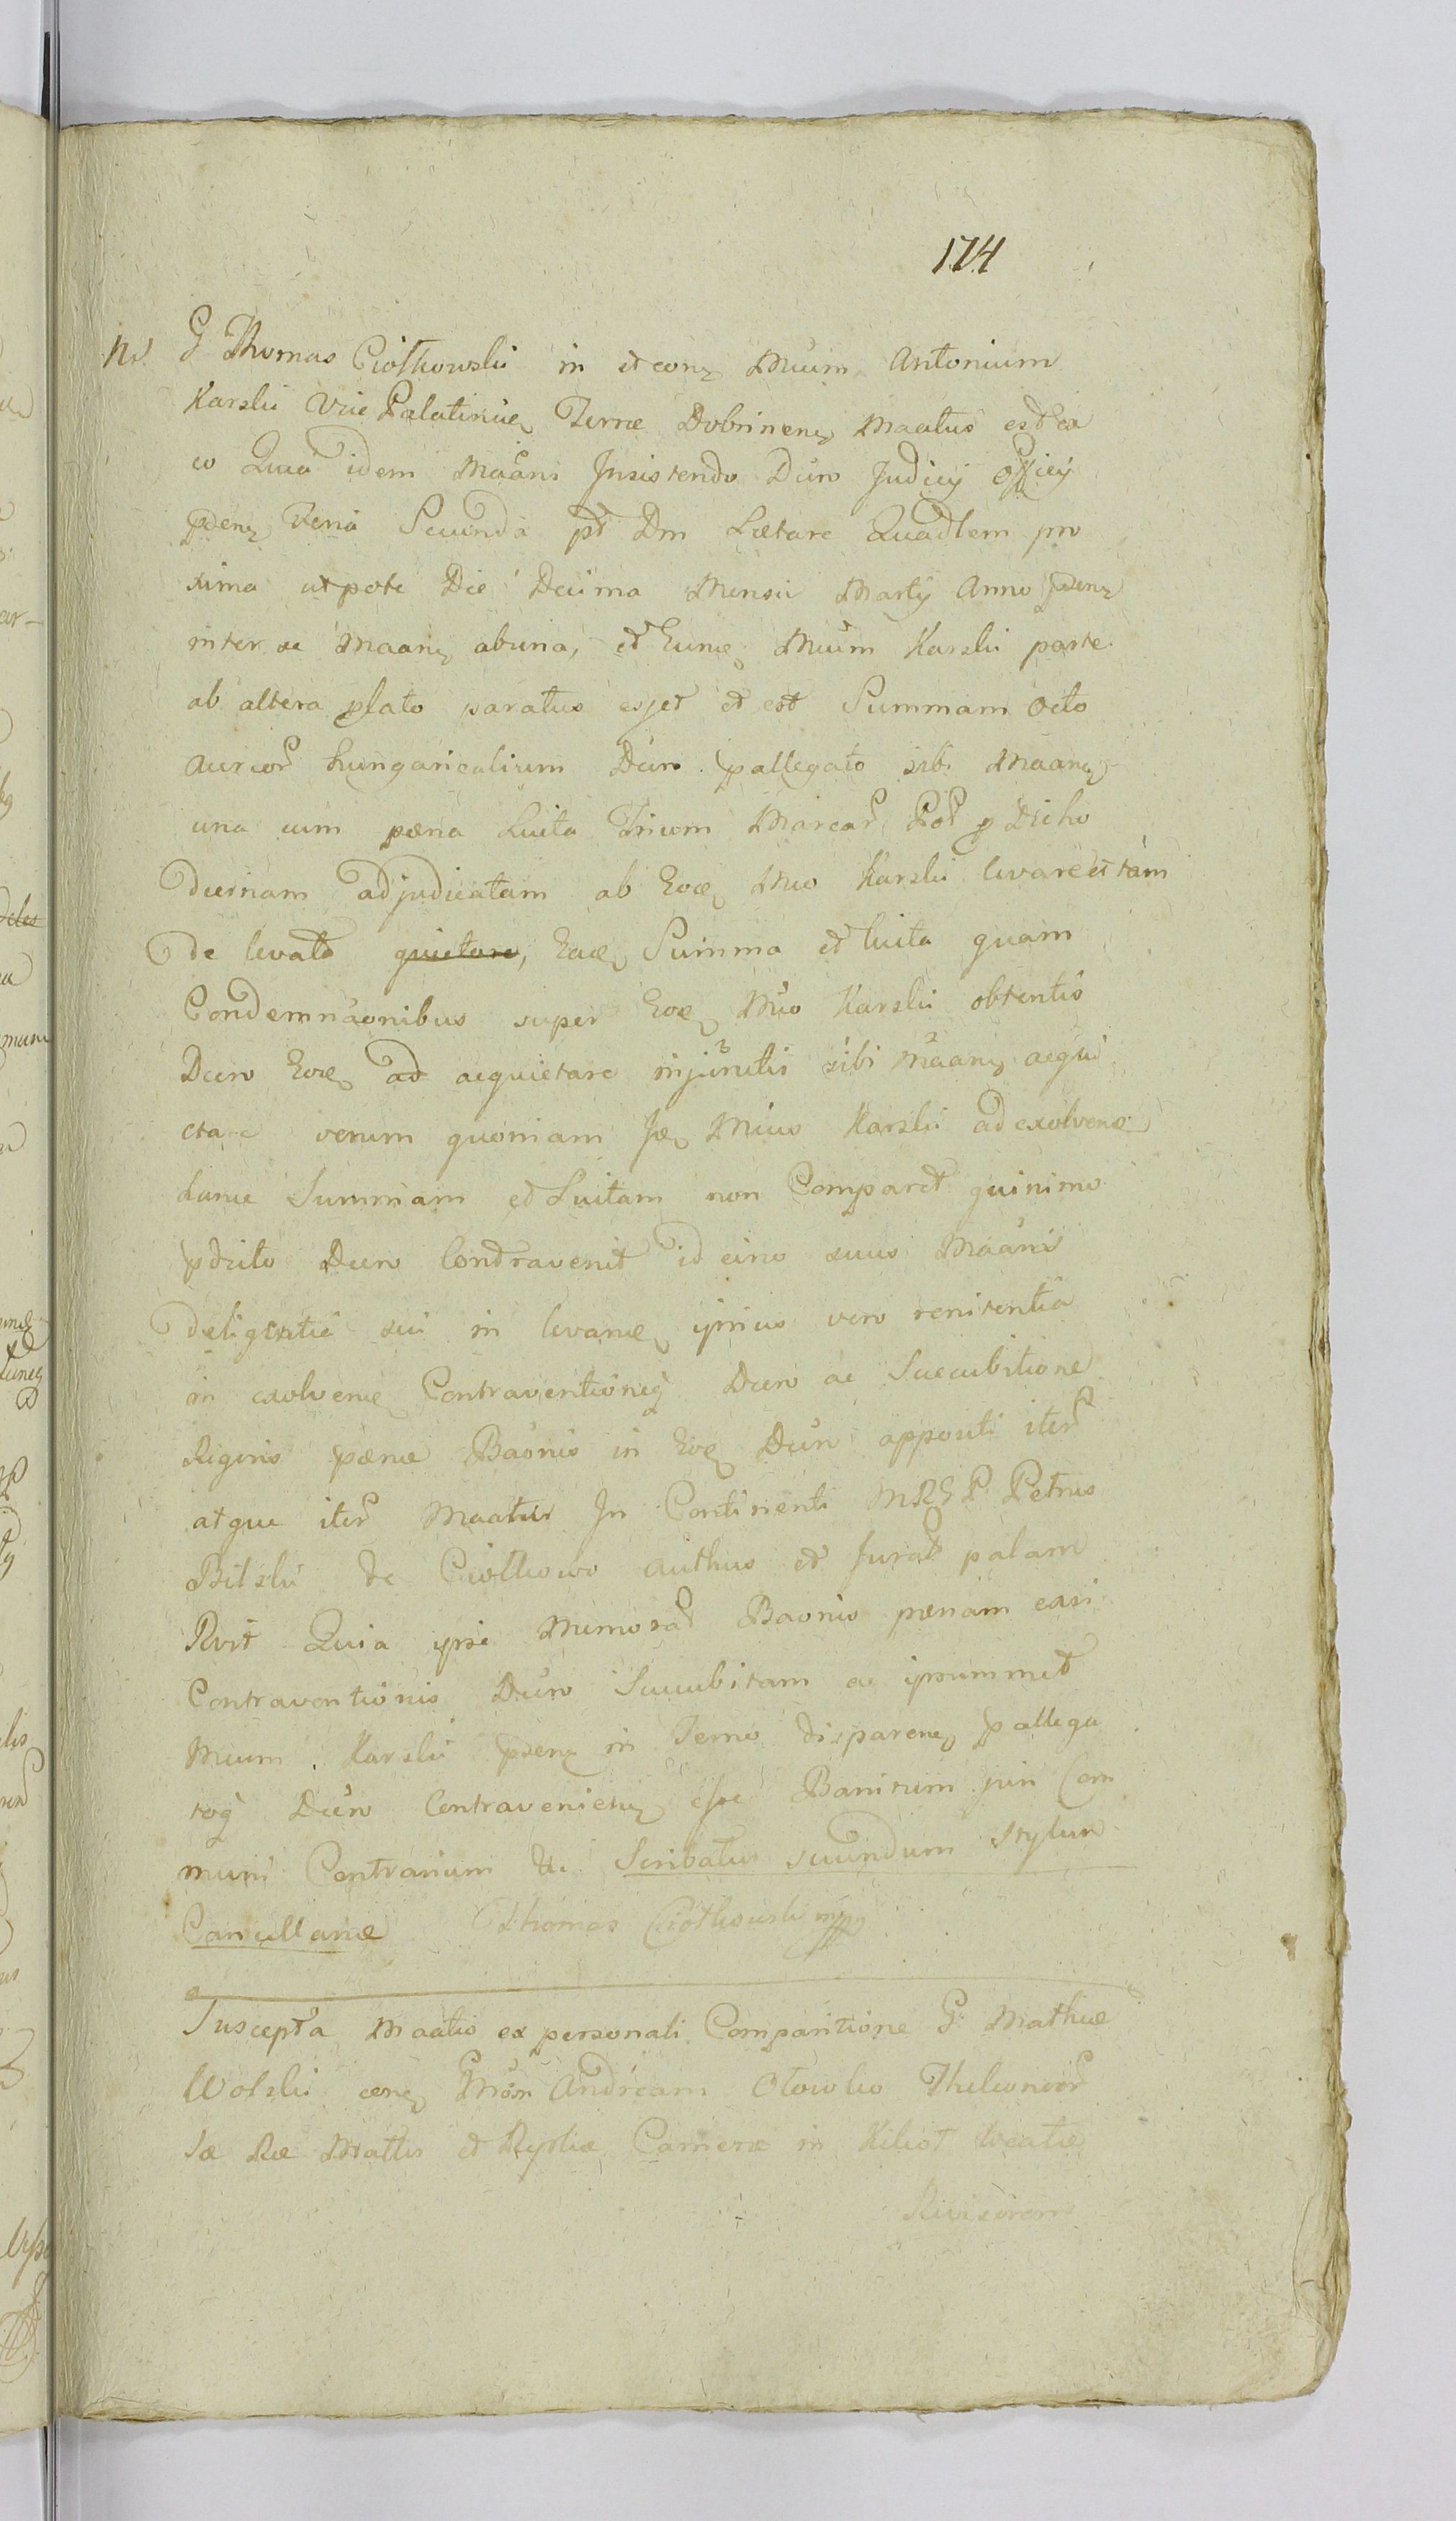 174
Nd. G Thomas Ciołkowski in et conq Mũum Antonium
Karski Vice Palatinũq Terræ Dobrinenq Maatus est ex
eo Quia idem Maãns Insistendo Dũro Judicij Officij
pdenq Feria Secunda pt Dm Lætare Quadlem pro
xima utpote Die Decima Mensis Martij Anno pdenq
inter se Maanq ab una, et Eunq Mũum Karski parte
ab altera plato paratus esset et est Summam octo
aureor hungaricalium Dũro pallegato sibi Maanq
una cum pæna Luita Trium Marcar Pol p Dicho
Decrnam adjudicatam ab Eoq Mũo Karski levare et tam
de levata quietare, Eaq Summa et luita quam
Condemnãonibus super Eoq Mũo Karski obtentis
Decro Eoq ad acquietare injũnctis sibi Mãanq acqui
etare verum quoniam Jdq Mũus Karski ad exolvend
dictam Summam et Luitam non Comparet quinimo
pdicto Decro Contravenit id circo suus Maãns
deligentiæ sui in levanq ipsius vero renitentia
in exolvenq Contraventioniq Decro ac Succubitione
Rigoris pænæ Baõnis in Eoq Dũro appositi iter
atque iter Maatur In Continenti MRGP Petrus
Bilski de Ciołkowo authus et Jurat palam
Rvit Quia ipse Memorat Baonis pænam casu
Contraventionis Dũro Succubitam ac ipsummet
Mũum Karski pdenq in Termo disparenq pallega
toq Dũro Contravenienq esse Banitum juri Com
muni Contrarium &c. Scribatur secundum Stylum
Cancellariæ Thomas Ciołkowski mpp
Suscepta Maatio ex personali Comparitione G. Mathiæ
Wolski conq Gnõsm Andream Thelonior
Sæ Ræ Mattis et Rpliæ Cameræ in Kikoł locatæ
Revisorem